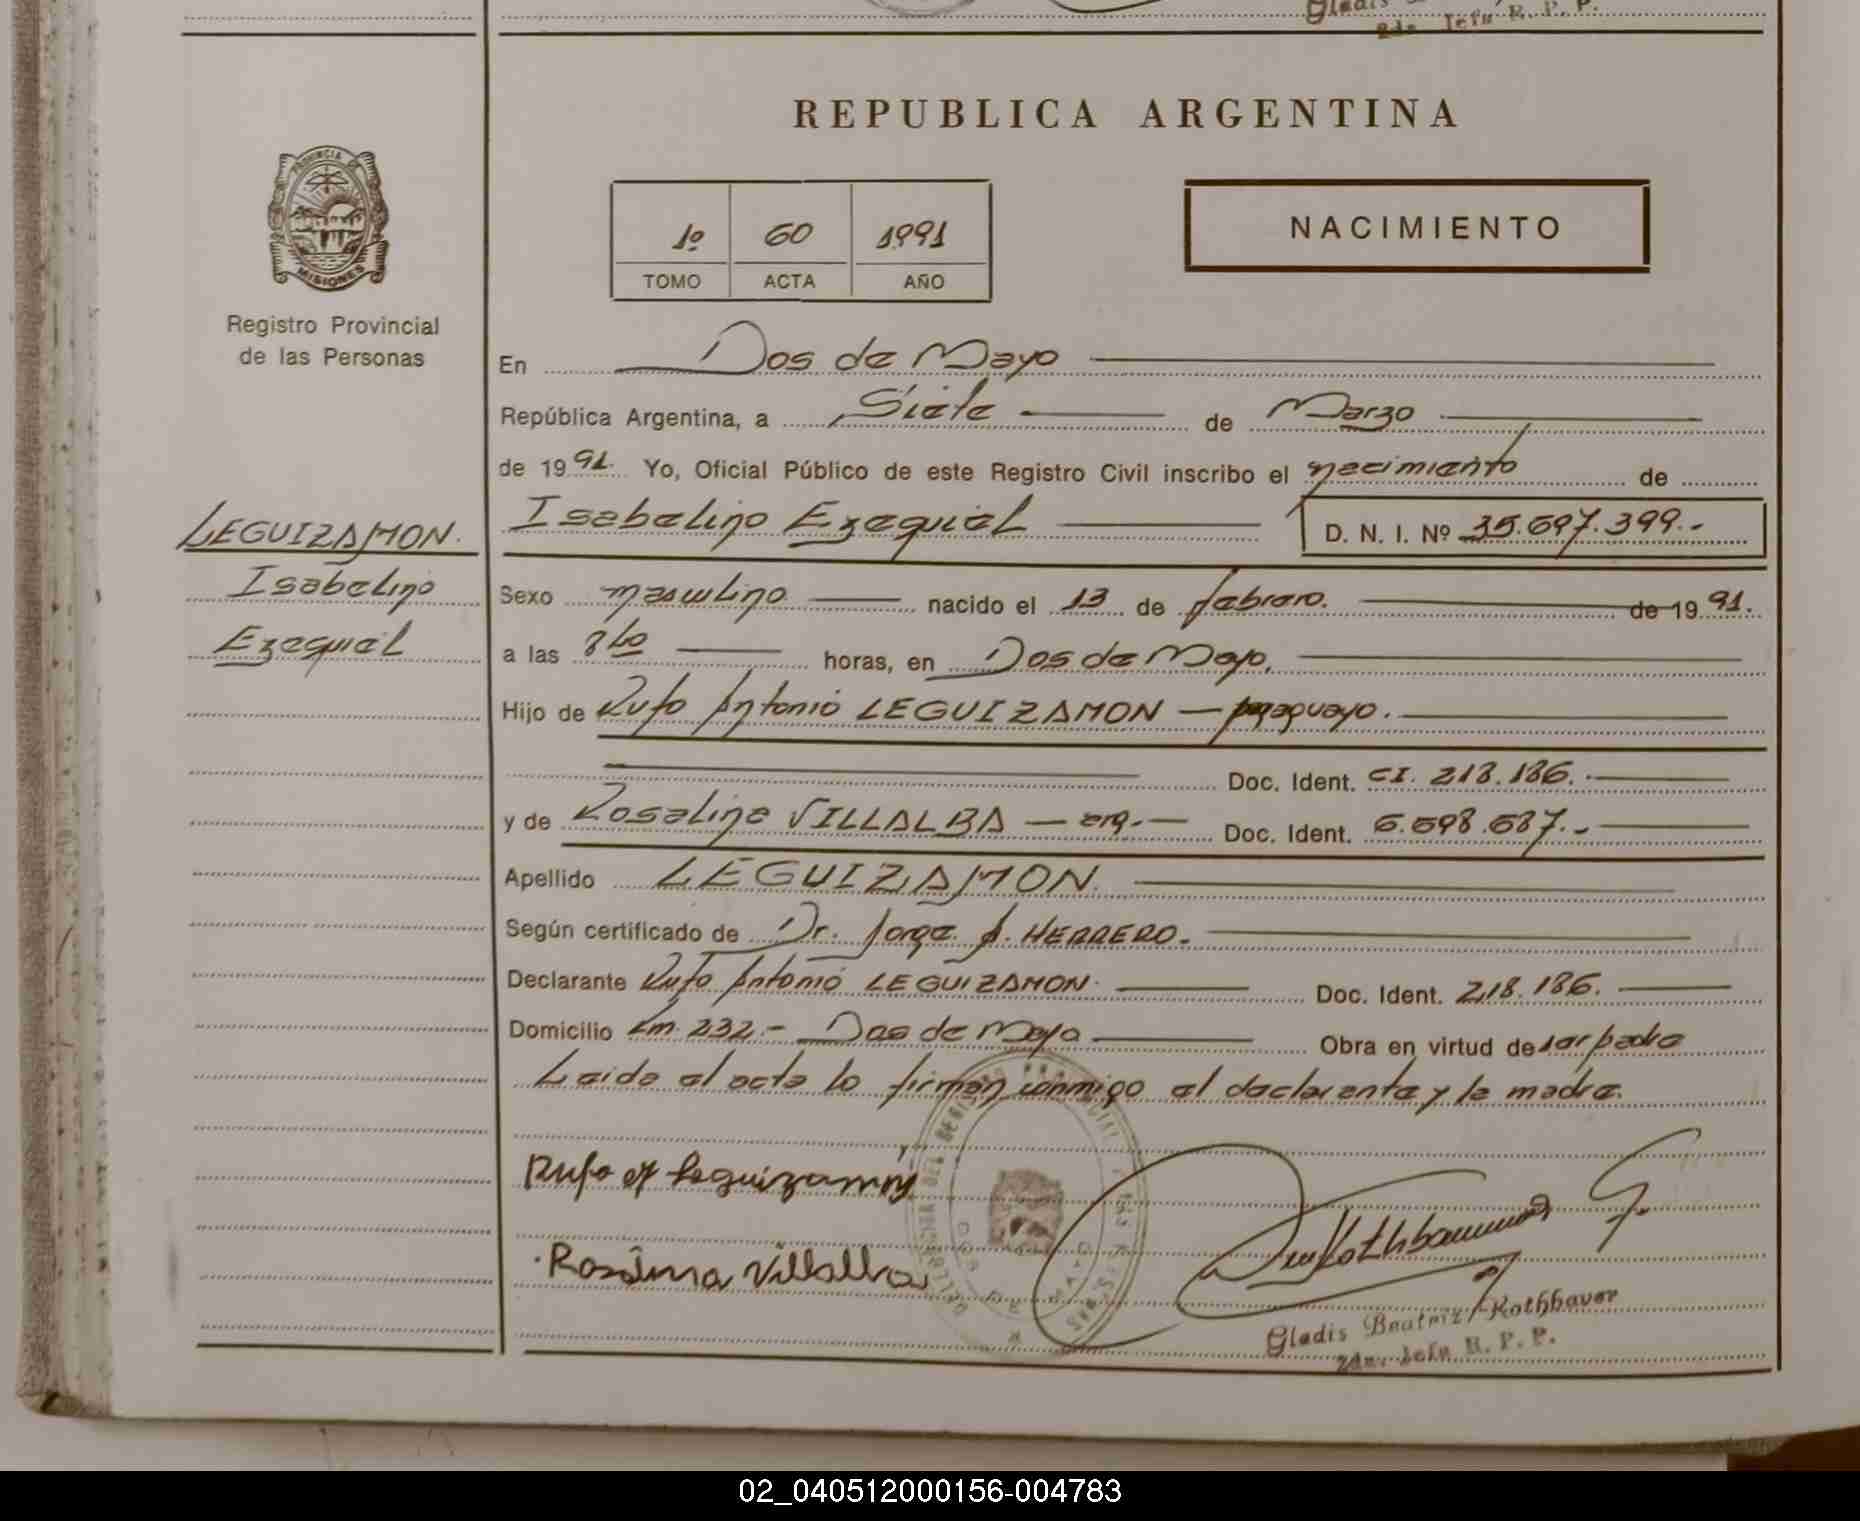 Gladis
2da. Jefa R. P. P.
REPUBLICA ARGENTINA
PROVINCIA DE
MISIONES
Registro Provincial
de las Personas
1º 60 1991
TOMO ACTA AÑO
NACIMIENTO
En Dos de Mayo
República Argentina, a Siete de Marzo
de 1991. Yo, Oficial Público de este Registro Civil inscribo el nacimiento de
LEGUIZAMON.
Isabelino
Ezequiel
Isabelino Ezequiel D. N. I. Nº 35.697.399.-
Sexo masculino nacido el 13 de febrero. de 1991.
a las horas, en Dos de Mayo.
Hijo de Rufo Antonio LEGUIZAMON — paraguayo.
Doc. Ident. CI. 218.186.
y de Rosalina VILLALBA — arg.— Doc. Ident. 6.698.687.-
Apellido LEGUIZAMON.
Según certificado de Dr. Jorge A. HERRERO.
Declarante Rufo Antonio LEGUIZAMON. Doc. Ident. 218.186.
Domicilio Km. 232.- Dos de Mayo Obra en virtud de ser padre
Leida el acta lo firman conmigo el declarante y la madre.
Rufo A Leguizamón
Rosalina Villalba
Gladis Beatriz Rothbauer
2da. Jefa R. P. P.
02_040512000156-004783